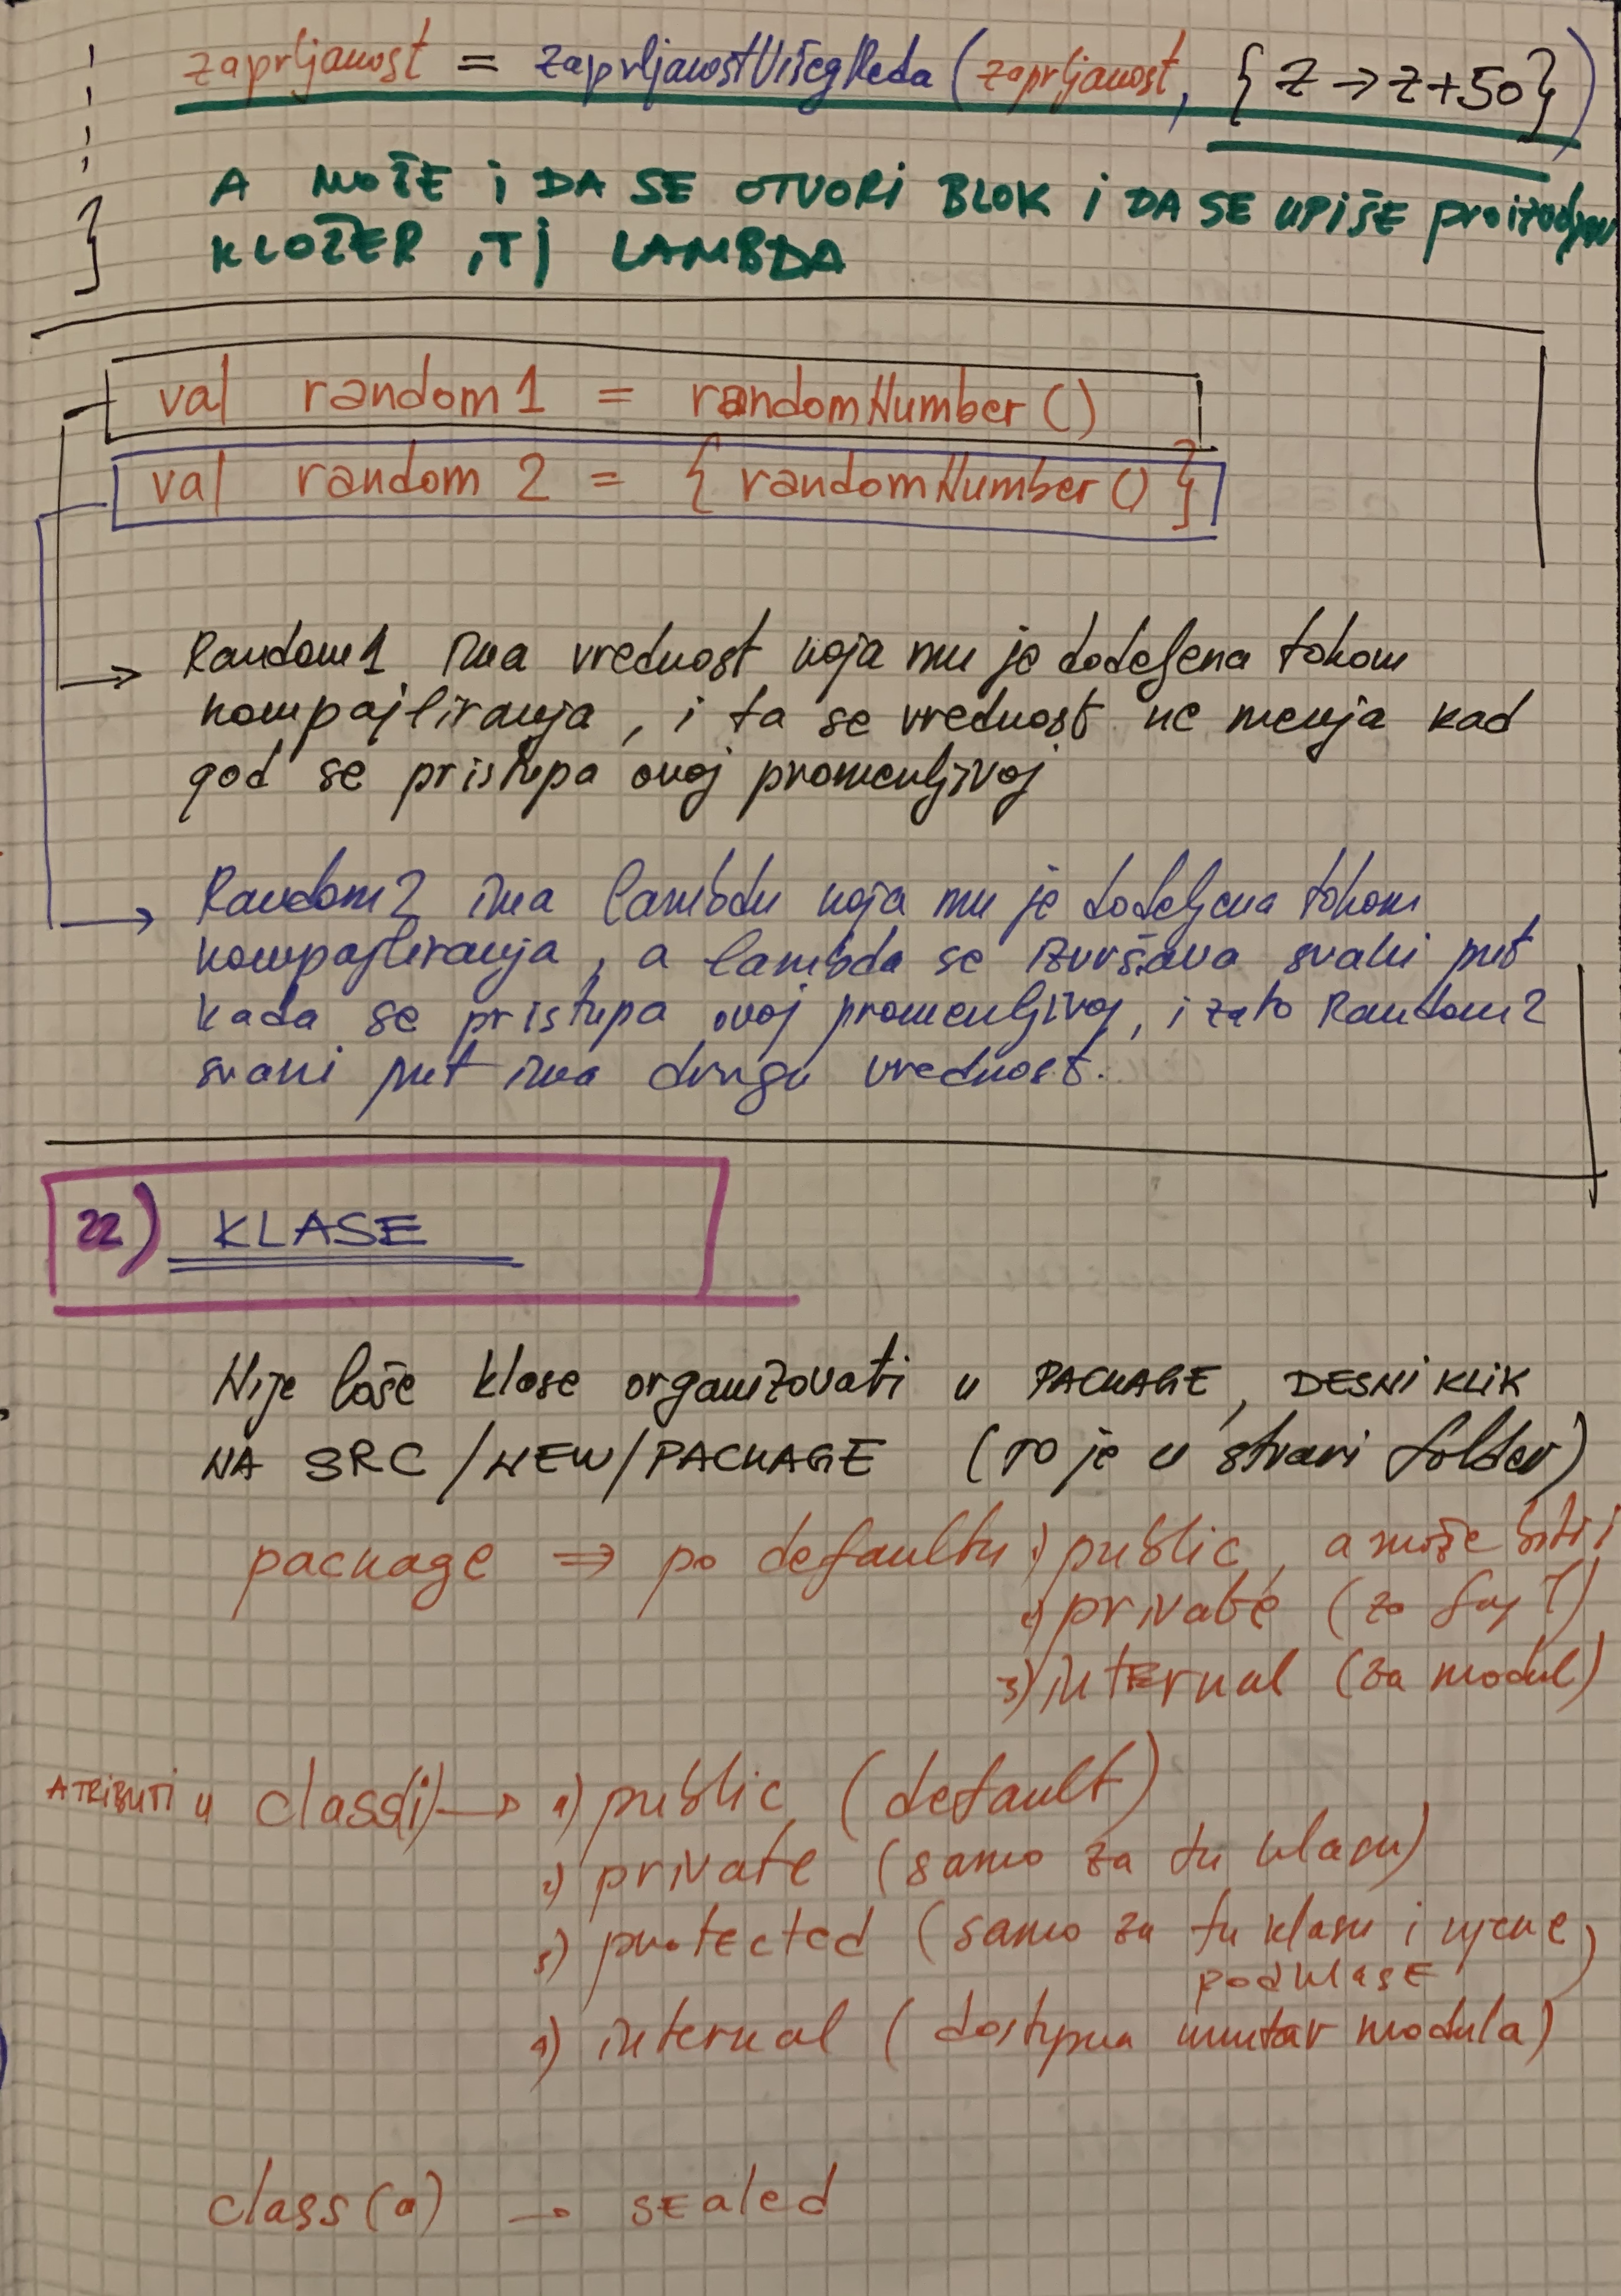 zaprljanost = zaprljanostVišegReda (zaprljanost, { z → z+50 })
A MOŽE i DA SE OTVORI BLOK i DA SE UPIŠE proizvoljni
KLOŽER, TJ LAMBDA
}
val random1 = randomNumber()
val random2 = { randomNumber() }
Random1 ima vrednost koja mu je dodeljena tokom
kompajliranja, i ta se vrednost ne menja kad
god se pristupa ovoj promenljivoj
Random2 ima lambdu koja mu je dodeljena tokom
kompajliranja, a lambda se izvršava svaki put
kada se pristupa ovoj promenljivoj, i zato Random2
svaki put ima drugu vrednost.
22) KLASE
Nije loše klase organizovati u PACKAGE, DESNI KLIK
NA SRC/NEW/PACKAGE (TO je u stvari folder)
package ⇒ po defaultu 1) public, a može biti i
2) private (za fajl)
3) internal (za modul)
ATRIBUTI u class(i) → 1) public (default)
2) private (samo za tu klasu)
3) protected (samo za tu klasu i njene
podklase)
4) internal (dostupna unutar modula)
class(a) → sealed